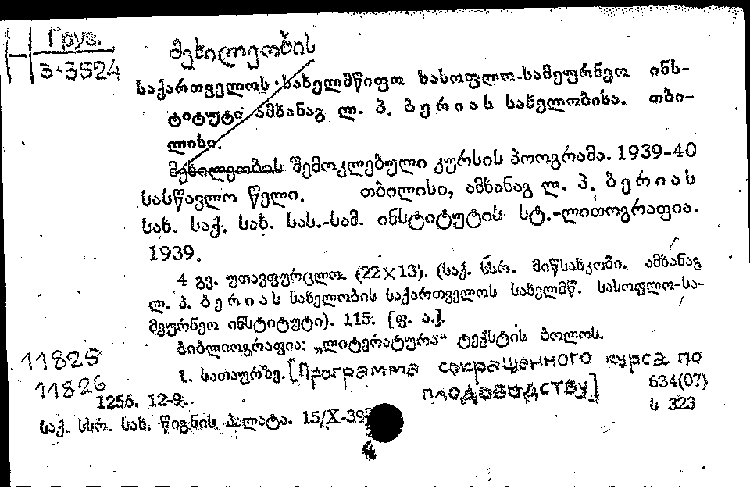 Груз.
З-3524
მეხილეობის
საქართველოს სახელმწიფო სასოფლო-სამეურნეო ინს-
ტიტუტი ამხანაგ ლ. პ. ბერიას სახელობისა. თბი-
ლისი.
მეხილეობის შემოკლებული კურსის პროგრამა. 1939-40
სასწავლო წელი. თბილისი, ამხანაგ ლ. პ. ბერიას
სახ. საქ. სახ. სას.-სამ. ინსტიტუტის სტ.-ლითოგრაფია.
1939.
4 გვ. უთავფურცლო. (22×13). (საქ. სსრ. მიწსახკომი. ამხანაგ
ლ. პ. ბერიას სახელობის საქართველოს სახელმწ. სასოფლო-სა-
მეურნეო ინსტიტუტი). 115. [ფ. ა.].
ბიბლიოგრაფია: „ლიტერატურა“ ტექსტის ბოლოს.
11825
1. სათაურზე. [Программа сокращенного курса по
11826
плодоводству]
634(07)
1256. 12-9.
ს 323
საქ. სსრ. სახ. წიგნის პალატა. 15/X-39